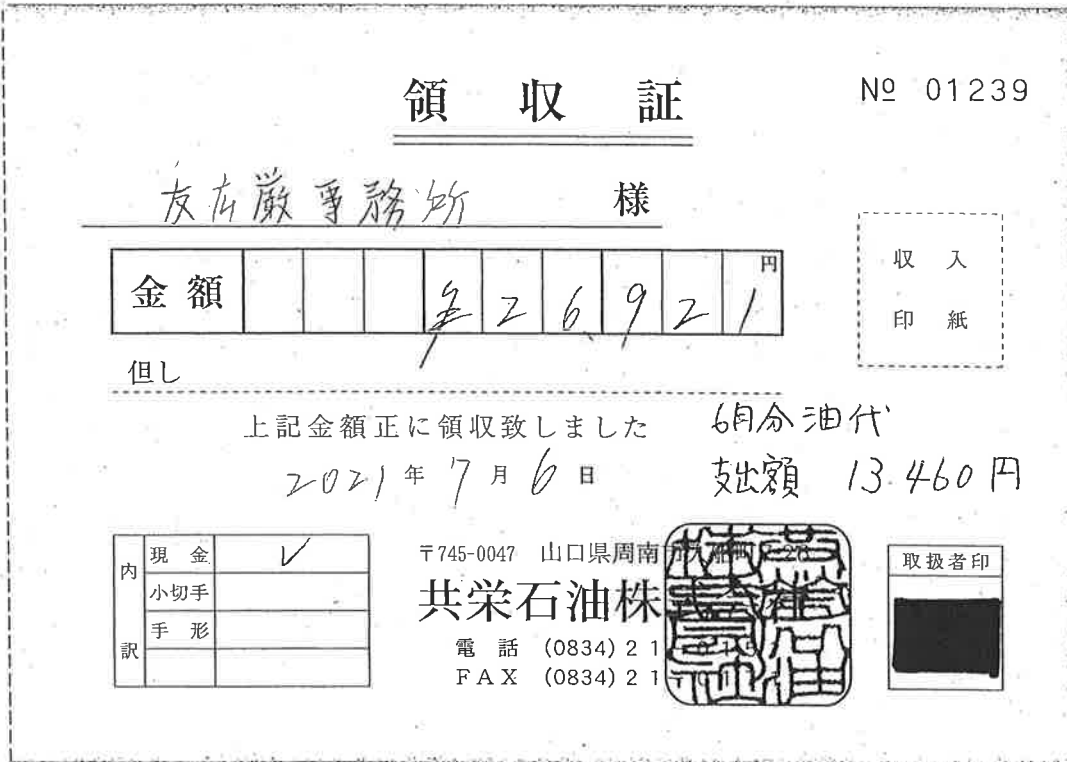 領収証
№ 01239
友広巌事務所 様
金額 ¥26,921 円
収入
印紙
但し
上記金額正に領収致しました
6月分油代
2021年7月6日
支出額 13.460円
内訳
現金 ✓
小切手
手形
〒745-0047 山口県周南
共栄石油株式会社
電話 (0834) 21
FAX (0834) 21
取扱者印